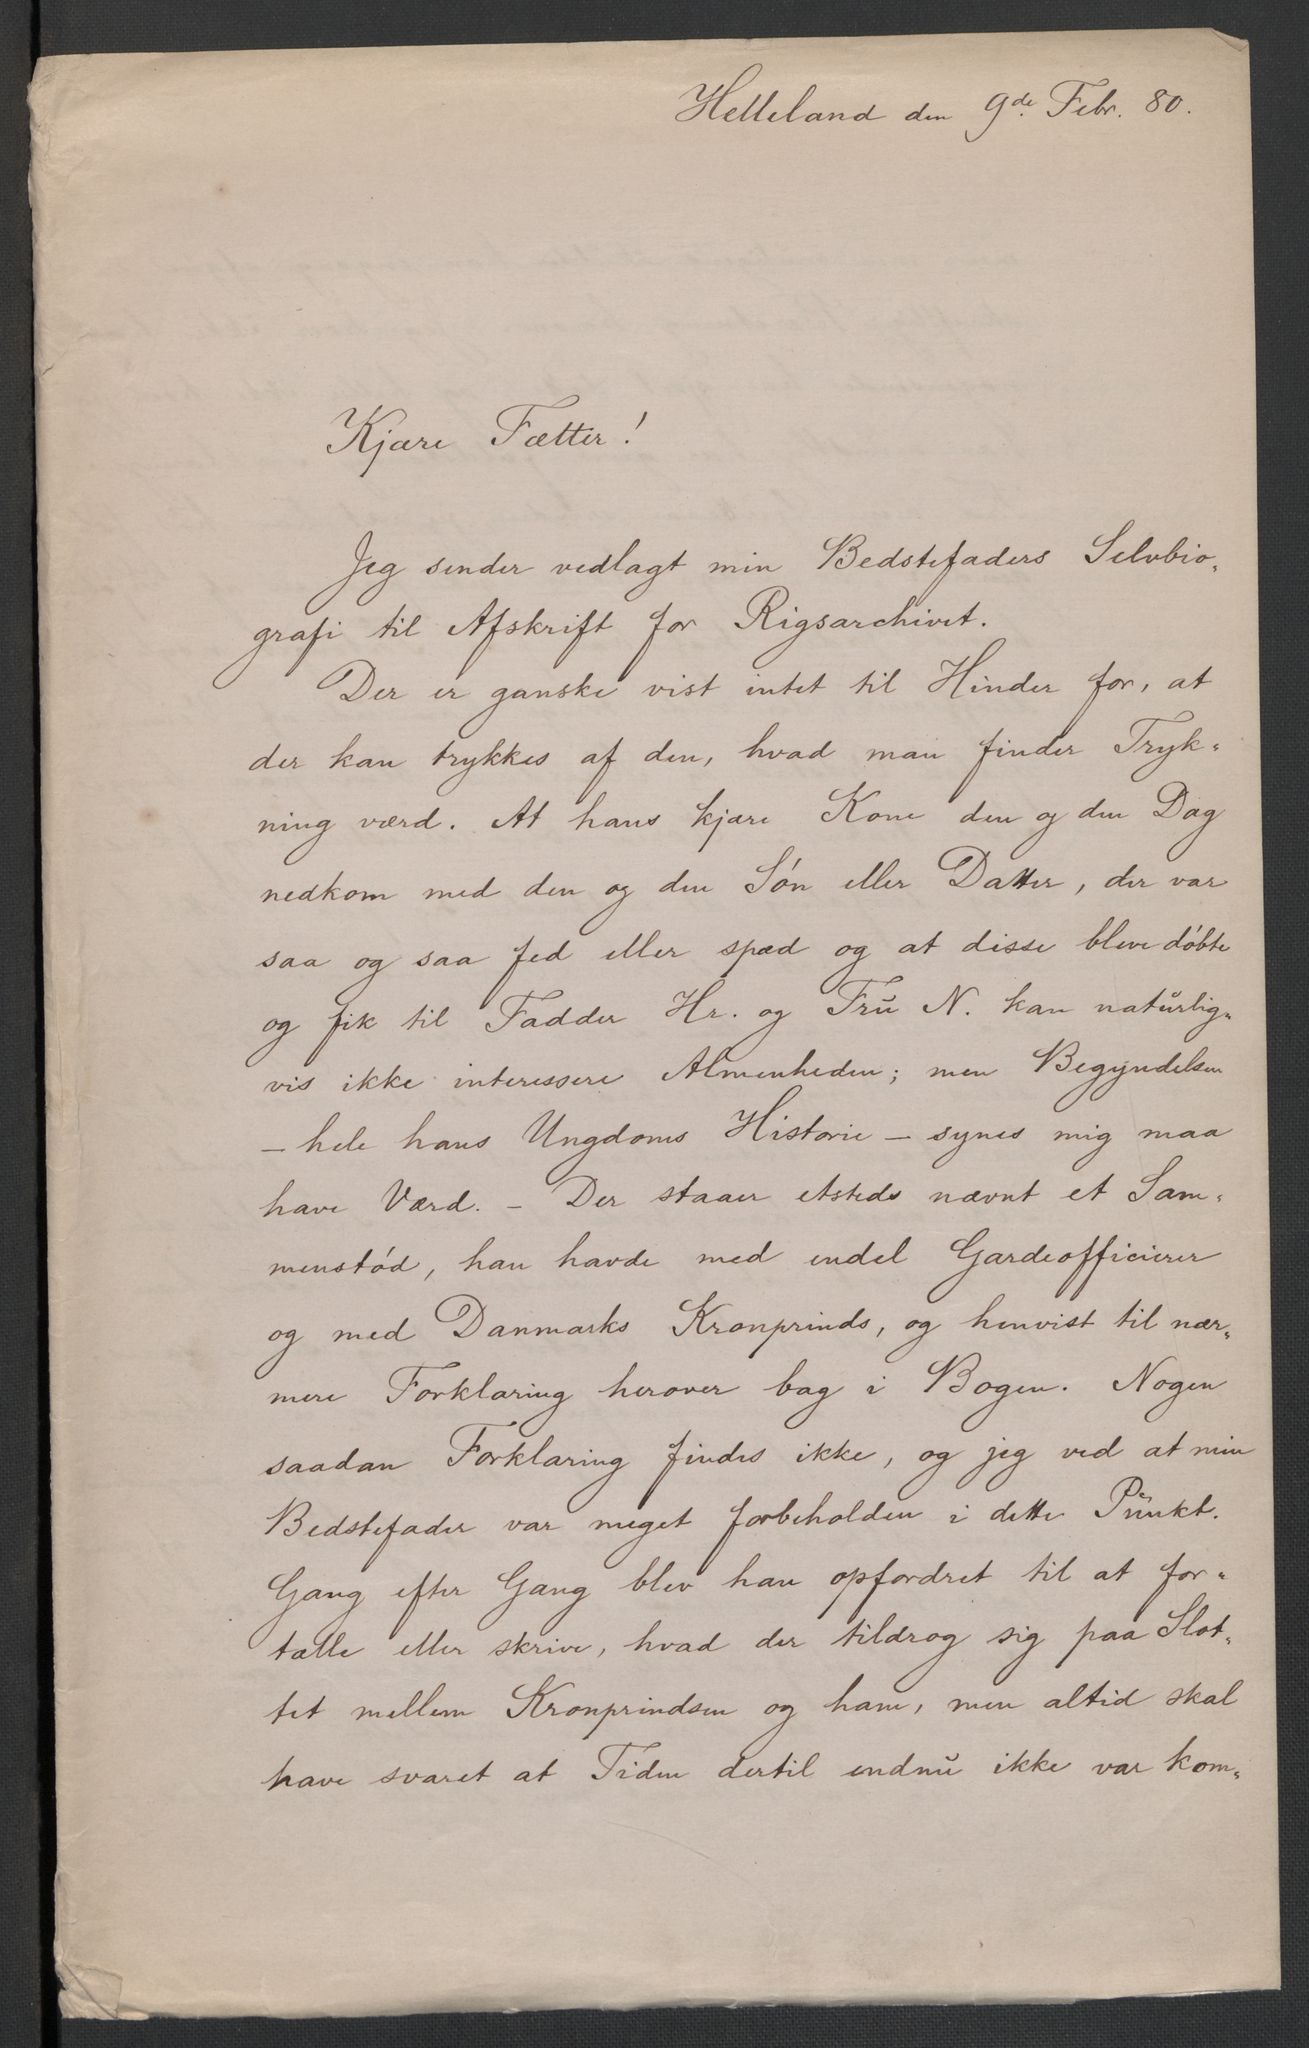 Helleland den 9de. Febr. 80.
Kjære Fætter!
Jeg sender vedlagt min Bedstefaders Selvbio-
grafi til Afskrift for Rigsarchivet.
Der er ganske vist intet til Hinder for, at
der kan trykkes af den, hvad man finder Tryk-
ning værd. At hans kjære Kone den og den Dag
nedkom med den og den Søn eller Datter, der var
saa og saa fed eller spæd og at disse bleve døbte
og fik til Fadder Hr. og Fru N. kan naturlig-
vis ikke interessere Almenheden; men Begyndelsen
– hele hans Ungdoms Historie – synes mig maa
have Værd. – Der staaer etsteds nævnt et Sam-
menstød, han havde med endel Gardeofficierer
og med Danmarks Kronprinds, og henvist til nær-
mere Forklaring herover bag i Bogen. Nogen
saadan Forklaring findes ikke, og jeg ved at min
Bedstefader var meget forbeholden i dette Punkt.
Gang efter Gang blev han opfordret til at for-
tælle eller skrive, hvad der tildrog sig paa Slot-
tet mellem Kronprindsen og ham, men altid skal
have svaret at Tiden dertil endnu ikke var kom-